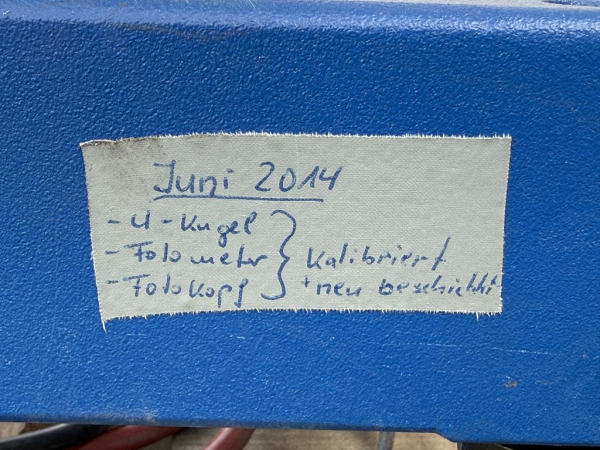 Juni 2014
- U - Kugel
- Fotometer } Kalibriert
- Fotokopf + neu beschichtet